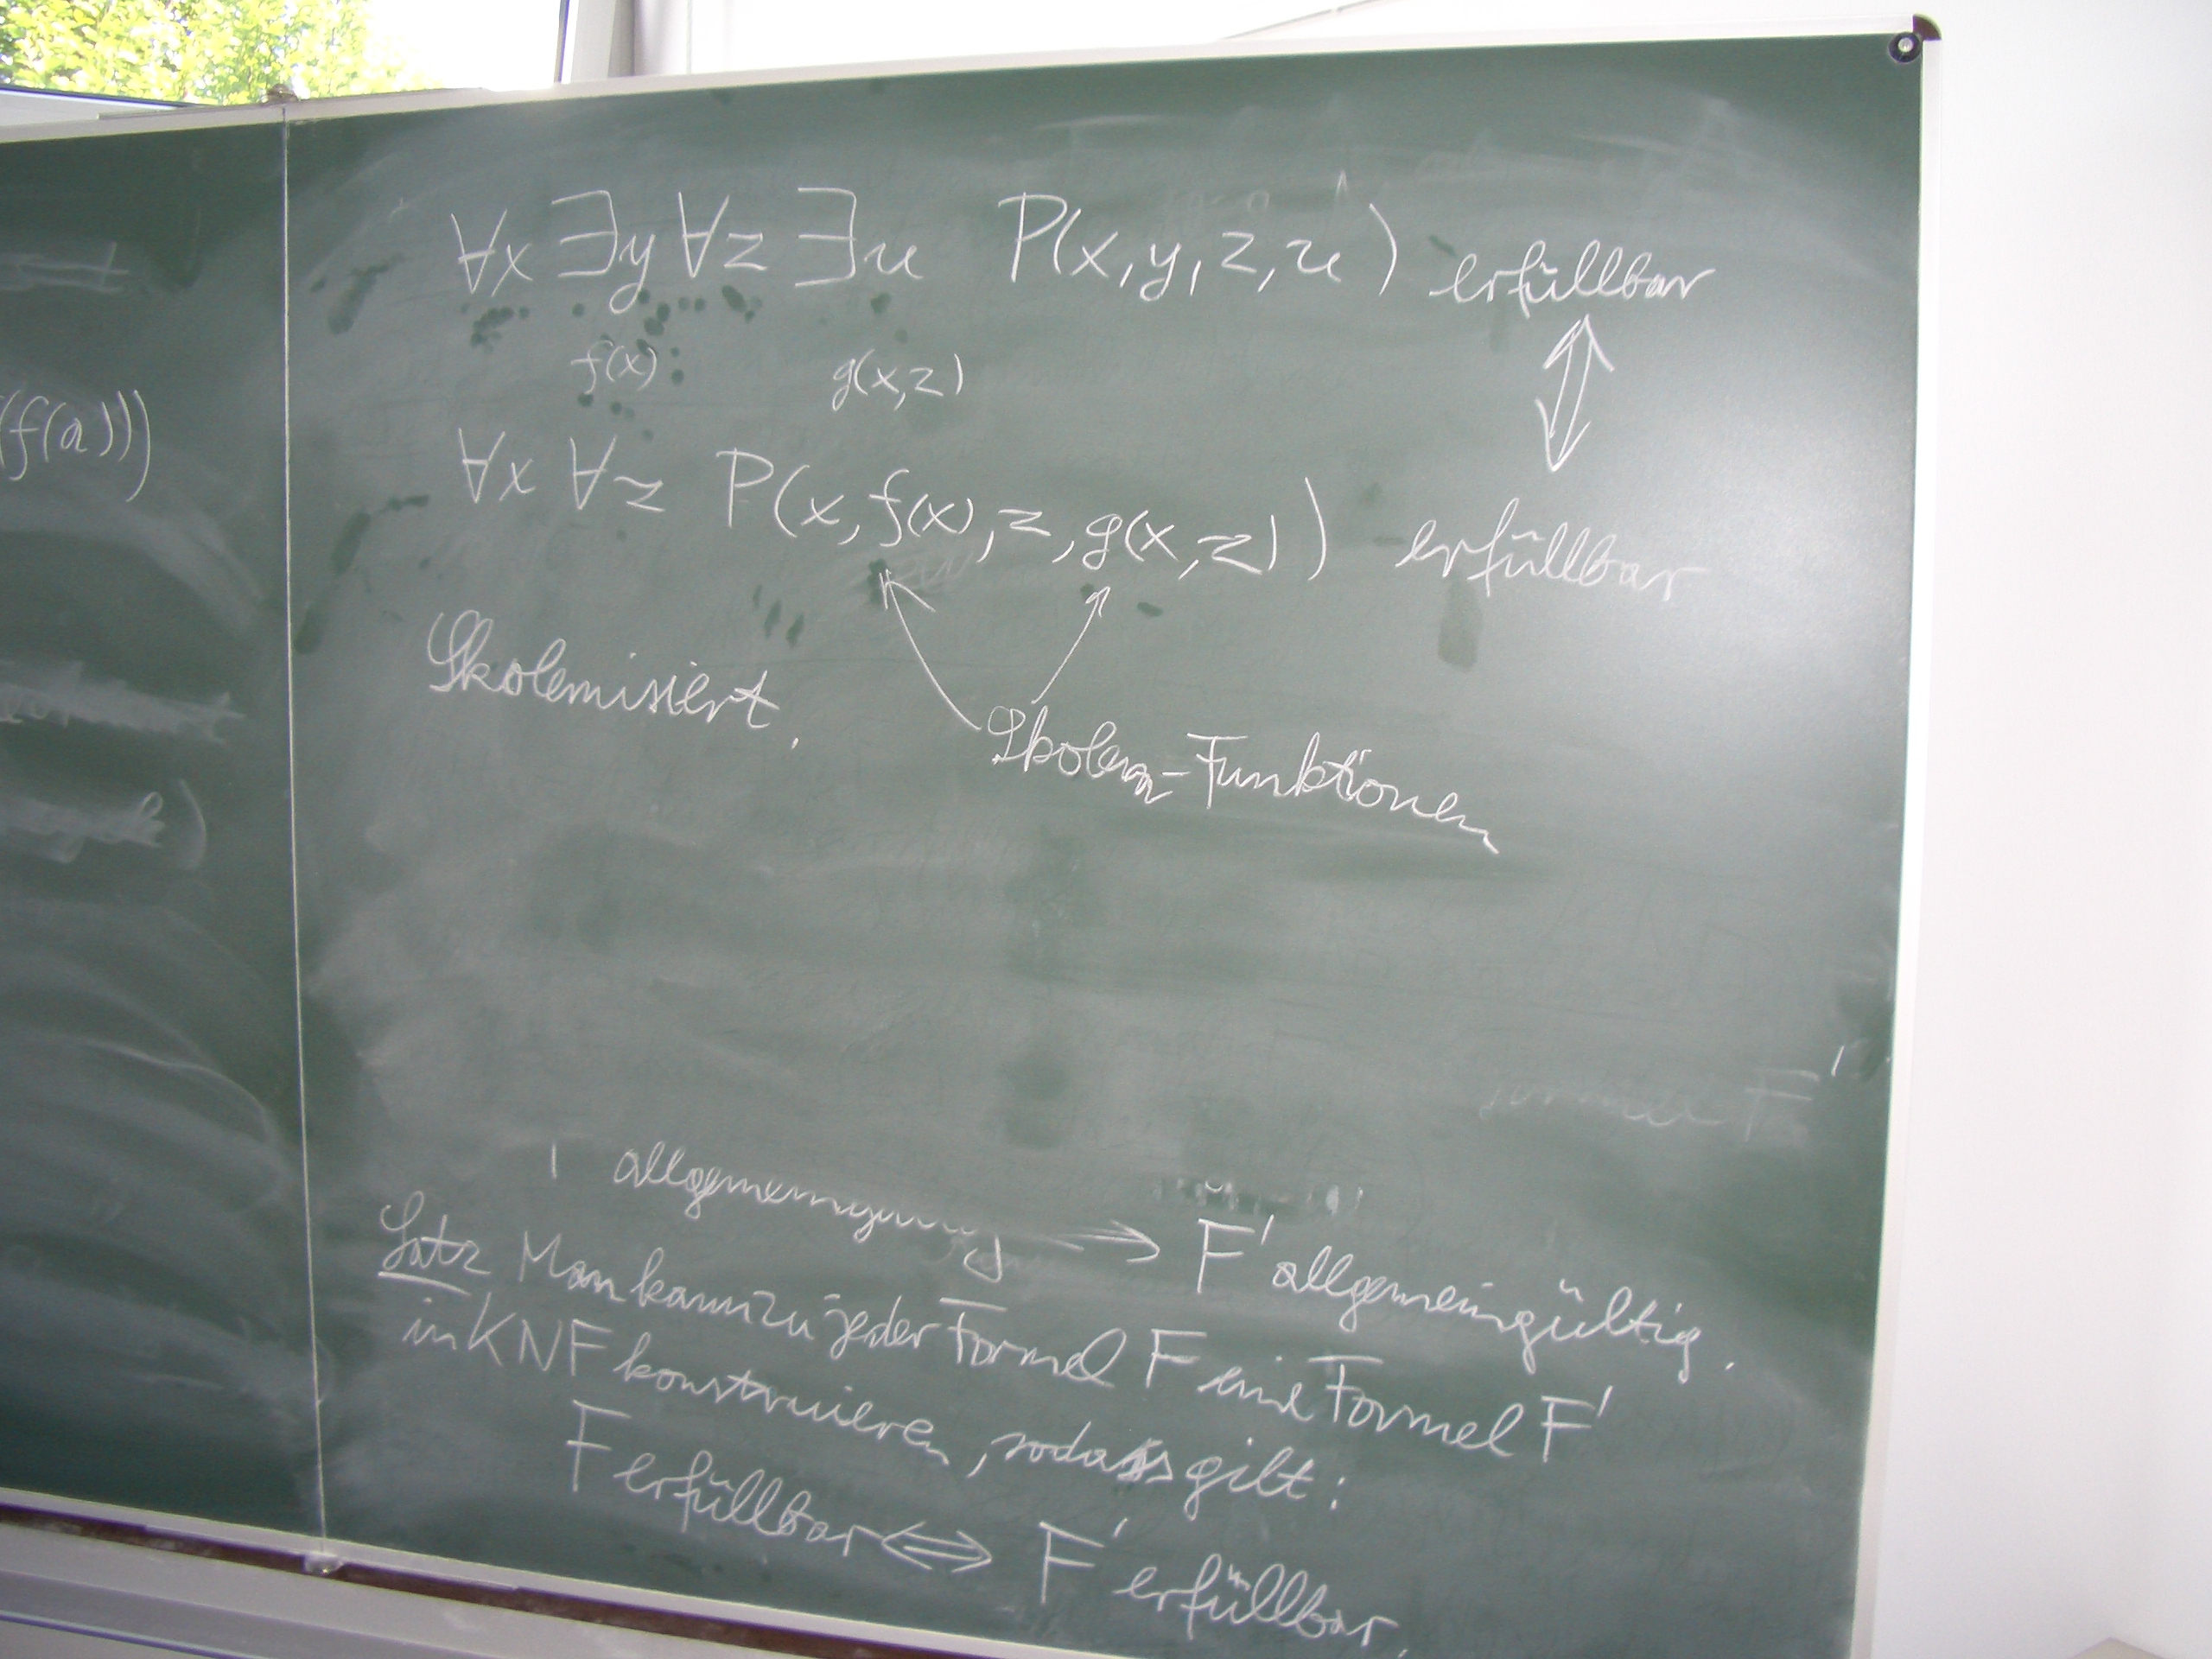 (f(a)))
∀x ∃y ∀z ∃u P(x,y,z,u) erfüllbar
f(x) g(x,z)
⇕
∀x ∀z P(x,f(x),z,g(x,z)) erfüllbar
Skolemisiert.
Skolem-Funktionen
F'
allgemeingültig → F' allgemeingültig.
Satz Man kann zu jeder Formel F eine Formel F'
in KNF konstruieren, sodass gilt:
F erfüllbar ⇔ F' erfüllbar.